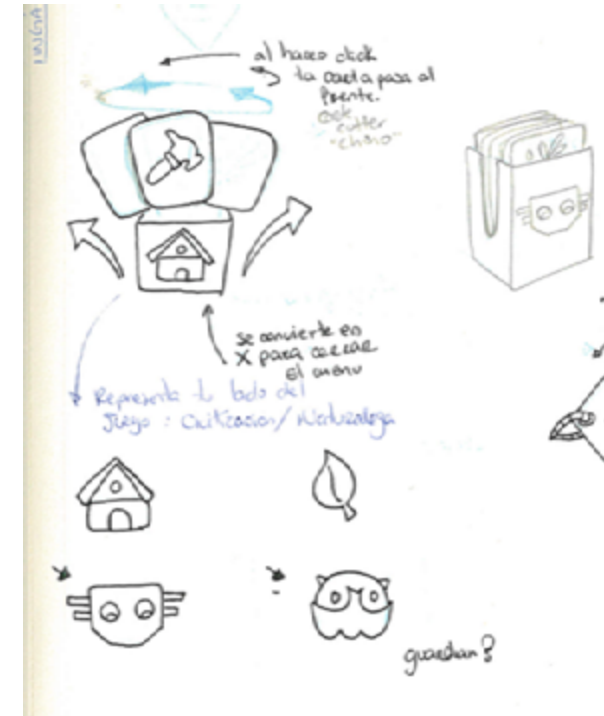 al hacer click
la carta pasa al
frente.
cutter
"chino"
se convierte en
X para cerrar
el menu
Representa tu lado del
Juego : Civilizacion / Naturaleza
guardian?